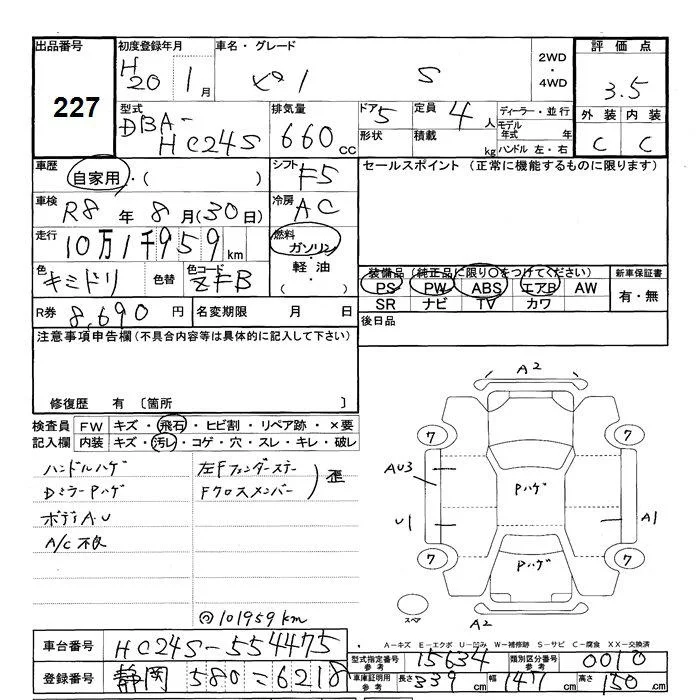 出品番号 227
初度登録年月 H20 1月
車名・グレード ピノ S
2WD・4WD
評価点 3.5
外装 C 内装 C
型式 DBA-HC24S
排気量 660cc
ドア 5
形状
定員 4人
積載 kg
ディーラー・並行
モデル年式 年
ハンドル 左・右
車歴 自家用・( )
シフト F5
セールスポイント (正常に機能するものに限ります)
車検 R8年8月(30日)
冷房 AC
走行 10万1千959km
燃料 ガソリン・軽油・( )
色 キミドリ 色替 色コード ZFB
装備品(純正品に限り○をつけてください)
PS PW ABS エアB AW
SR ナビ TV カワ
新車保証書 有・無
R券 8,690円 名変期限 月 日
後日品
注意事項申告欄(不具合内容等は具体的に記入して下さい)
修復歴 有 〔箇所 〕
検査員記入欄
FW キズ・飛石・ヒビ割・リペア跡・×要
内装 キズ・汚レ・コゲ・穴・スレ・キレ・破レ
ハンドルハゲ
DミラーPハゲ
ボディA・U
A/C不良
左Fフェンダーステー
Fクロスメンバー
歪
◎101959km
A2
7
7
AU3
Pハゲ
U1
A1
7
Pハゲ
7
スペア
A2
A-キズ E-エクボ U-凹み W-補修跡 S-サビ C-腐食 XX-交換済
車台番号 HC24S-554475
登録番号 静岡 580 = 6218
型式指定番号参考 15634 類別区分番号参考 0010
車庫証明用参考 長さ 339cm 幅 147cm 高さ 150cm